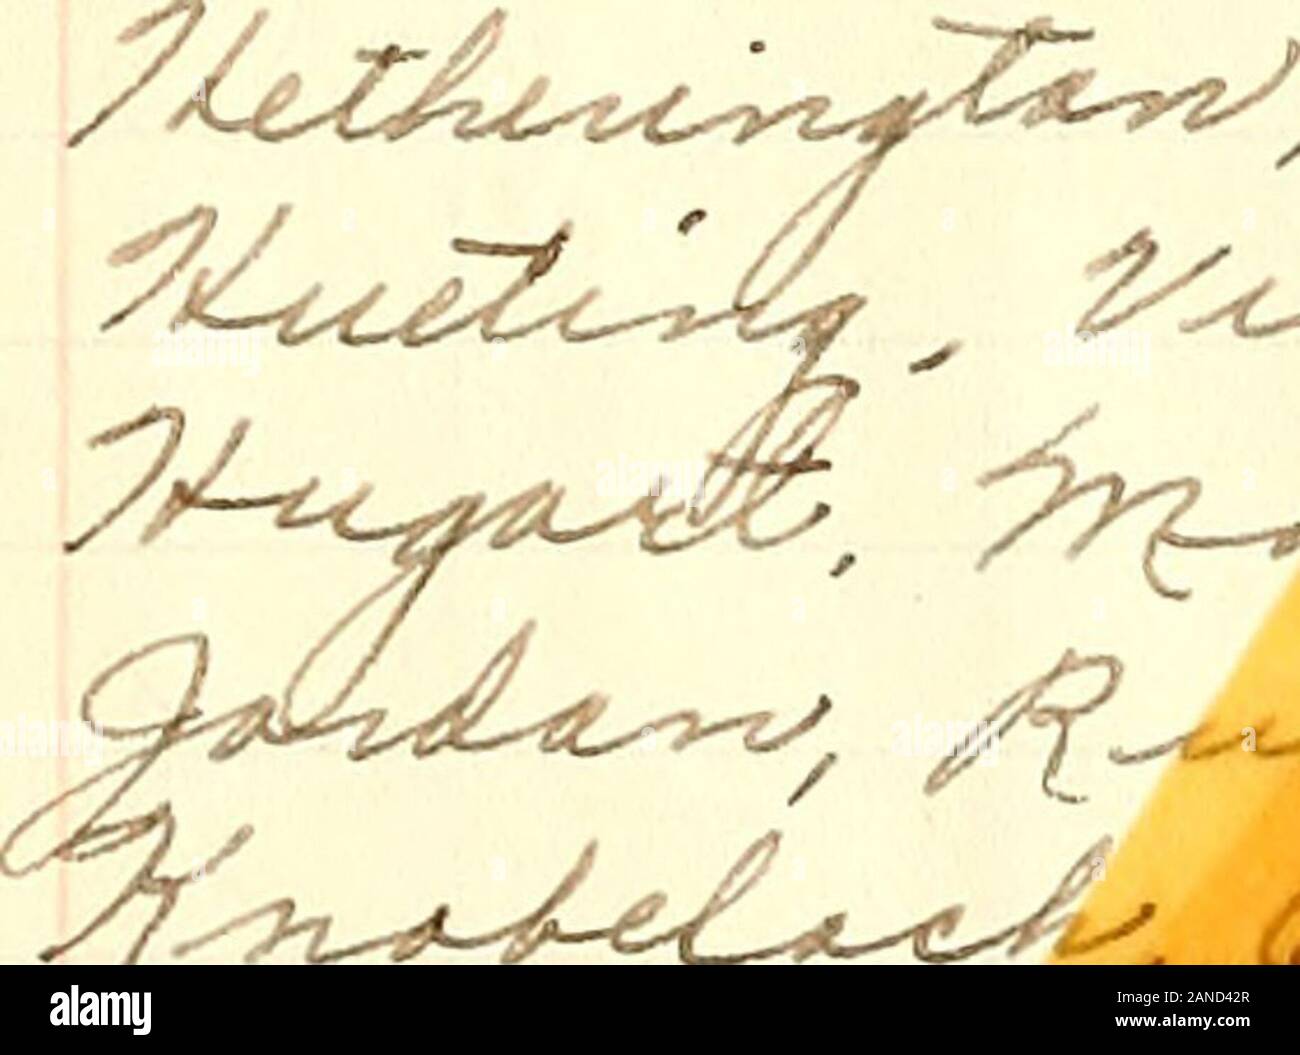 Hetherington,
Hueting, Vi
Hugart, Mo
Jordan, Ru
Knobeloch,
alamy
Image ID: 2AND42R
www.alamy.com